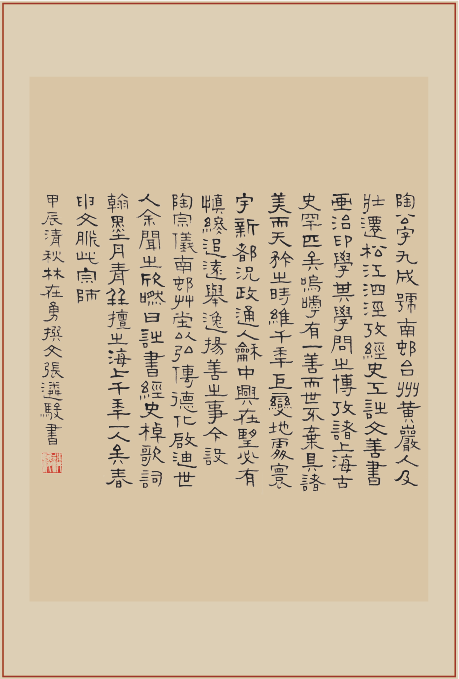 陶公字九成號南邨台州黃巖人及
壯遷松江泗涇攷經史工詩文善書
画治印學其學問之博攷諸上海古
史罕匹矣嗚嘑有一善而世不棄具諸
美而天矜之時維千年巨變地處寰
宇新都況政通人龢中興在望必有
慎終追遠舉逸揚善之事今設
陶宗儀南邨艸堂以弘傳德化啟迪世
人余聞之欣嘫曰詩書經史棹歌詞
翰墨丹青兹擅之海上千年一人矣春
申文脈此宗師
甲辰清秋林在勇撰文張遴駿書